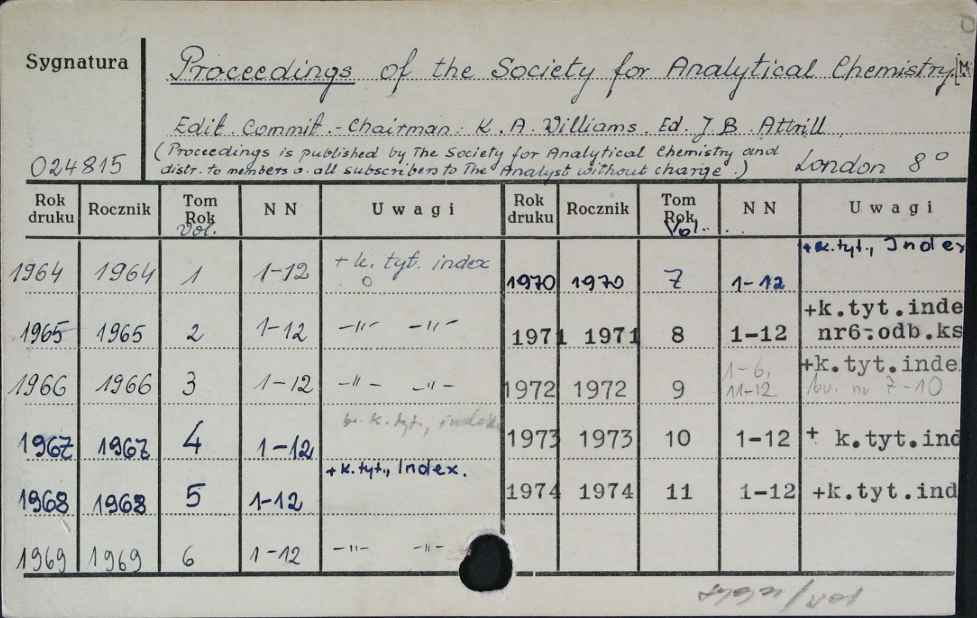 Sygnatura
Proceedings of the Society for Analytical Chemistry
Edit. Commit. - Chairman: K. A. Williams. Ed. J. B. Attrill
(Proceedings is published by The Society for Analytical Chemistry and
distr. to members a. all subscribers to The Analyst without charge.)
024815
London 8°
Rok druku Rocznik Tom Rok Vol. NN Uwagi Rok druku Rocznik Tom Rok Vol. NN Uwagi
1964 1964 1 1-12 + k. tyt. index
1965 1965 2 1-12 -"- -"-
1966 1966 3 1-12 -"- -"-
1967 1967 4 1-12 k. tyt.,
1968 1968 5 1-12 + k. tyt., Index.
1969 1969 6 1-12 -"- -"-
1970 1970 7 1-12 + k. tyt., Index
1971 1971 8 1-12 +k.tyt.inde
nr6-odb.ks
1972 1972 9 1-6, 11-12 +k.tyt.inde
7-10
1973 1973 10 1-12 + k.tyt.ind
1974 1974 11 1-12 +k.tyt.ind